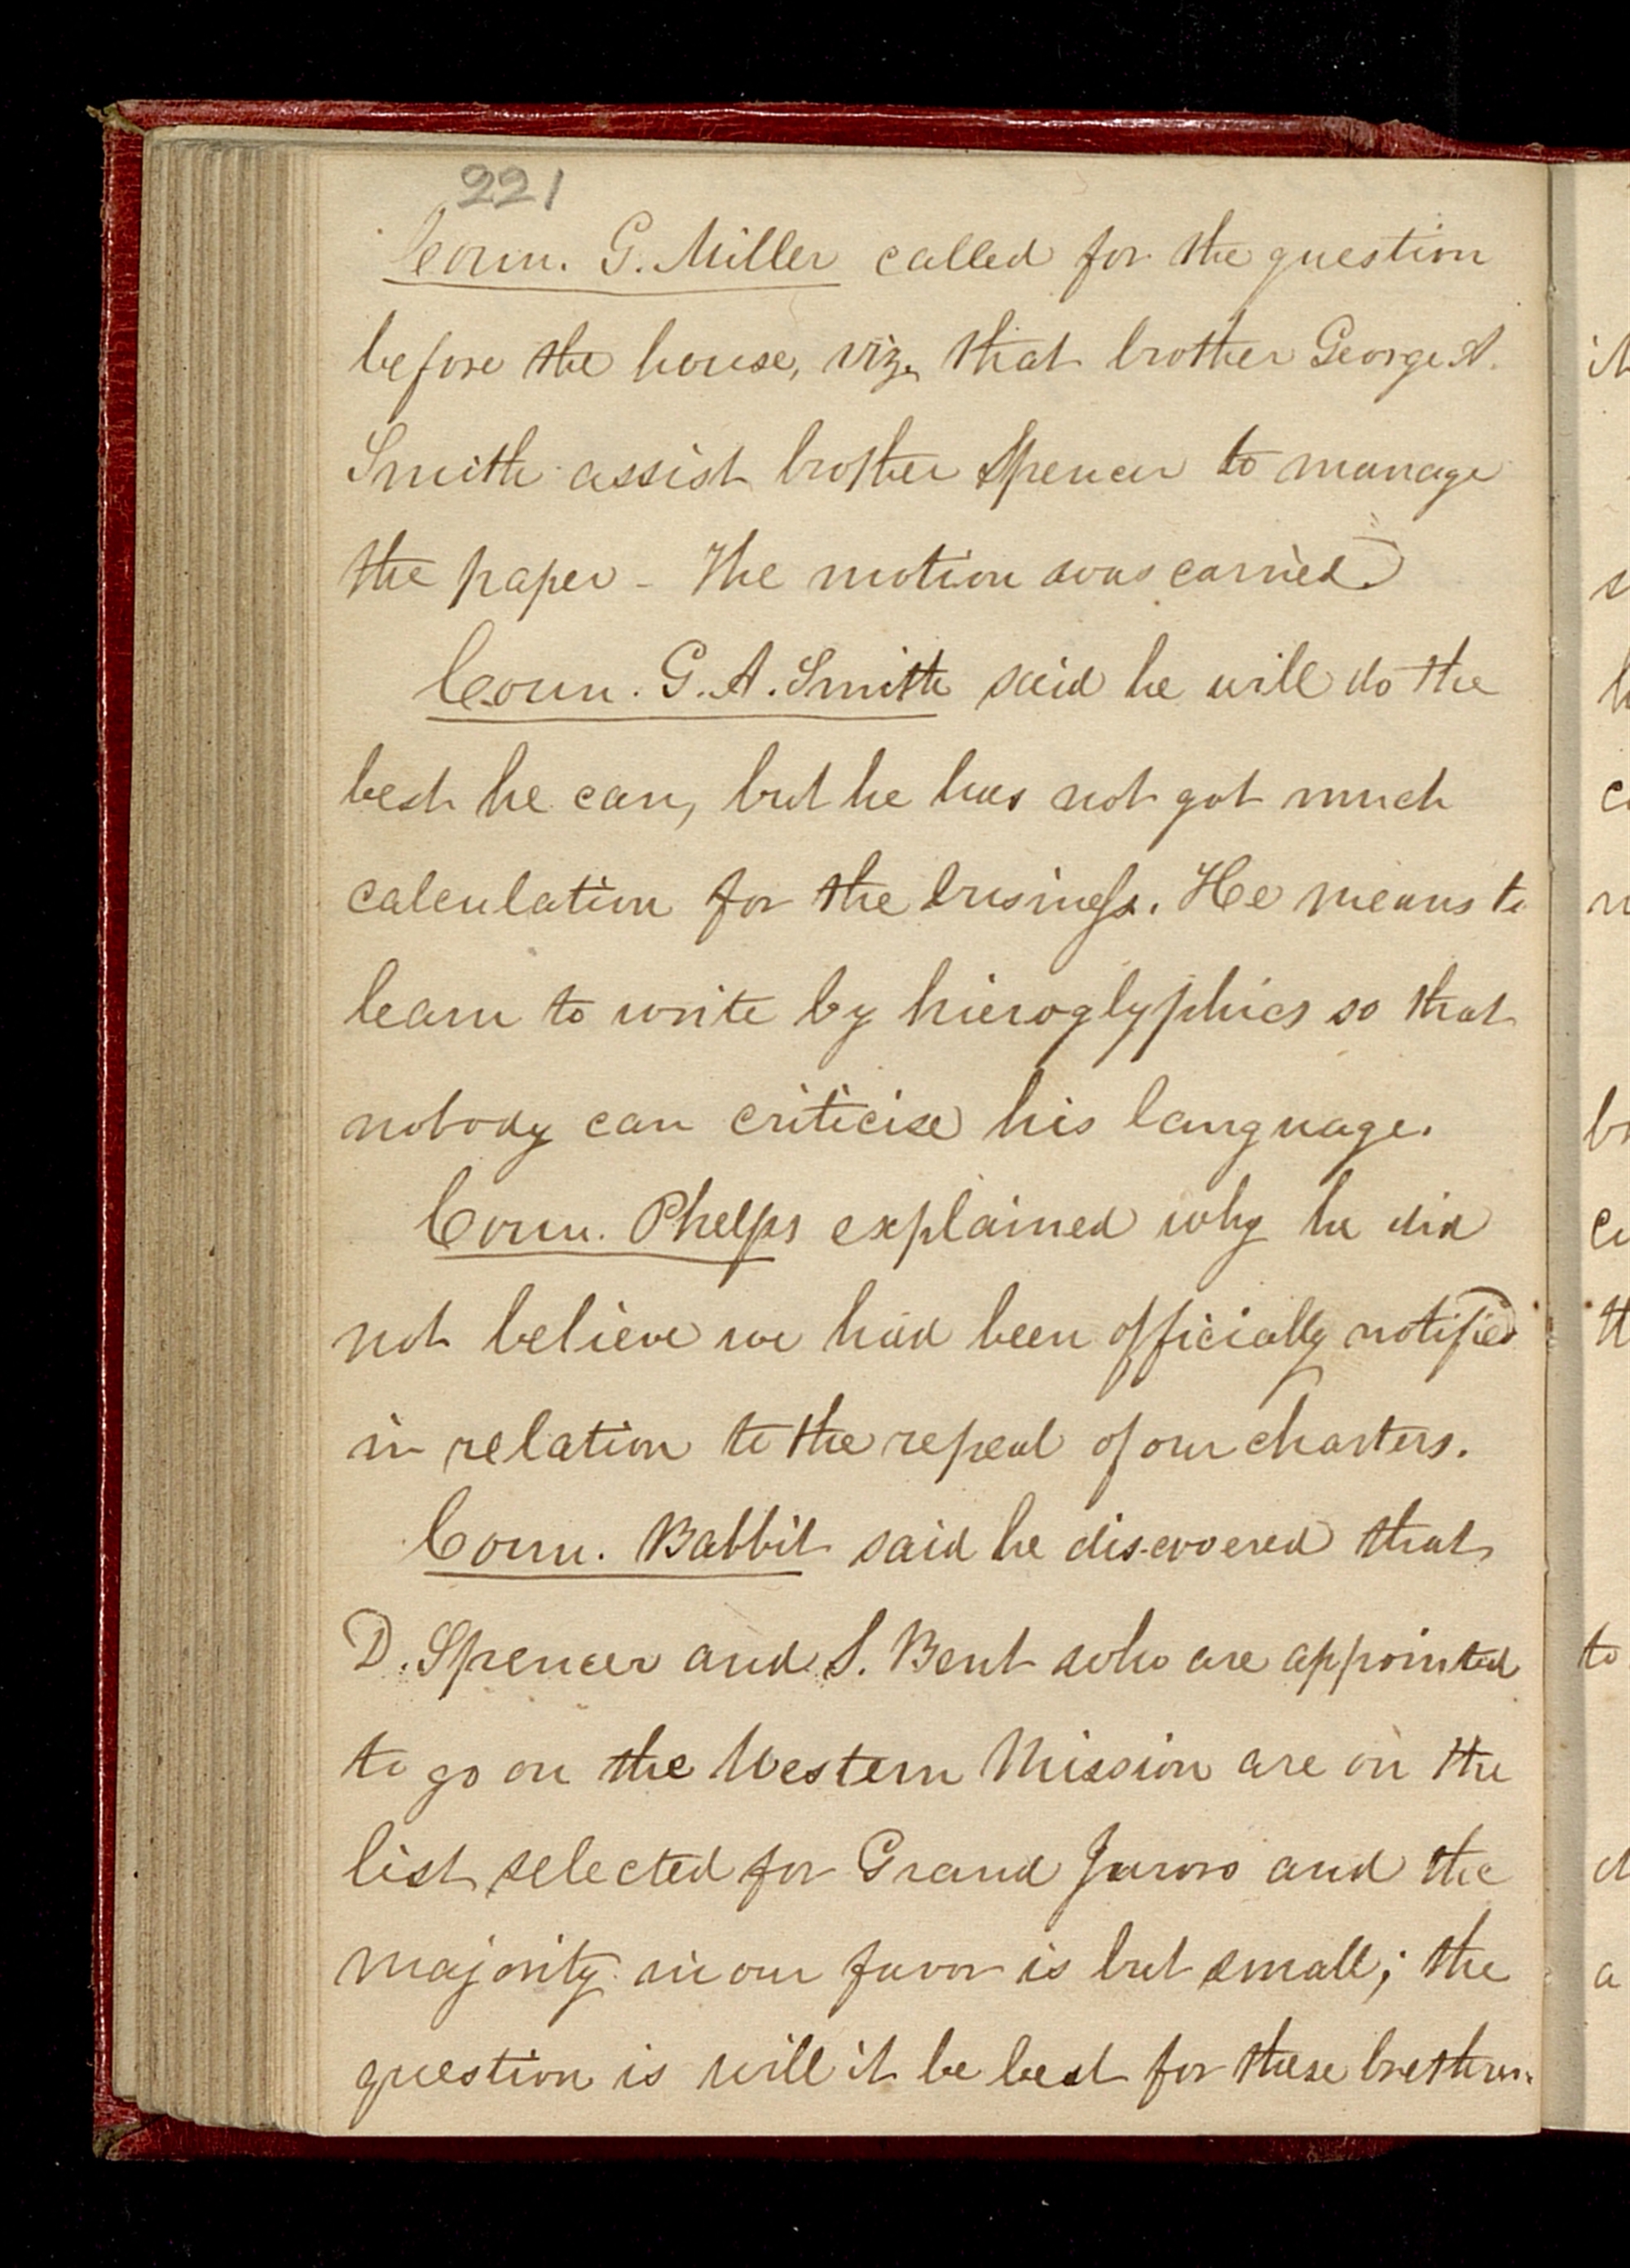 221
Coun. G. Miller called for the question
before the house, viz. that brother George A.
Smith assist brother Spencer to manage
the paper - The motion was carried.
Coun. G. A. Smith said he will do the
best he can, but he has not got much
calculation for the business. He means to
learn to write by hieroglyphics so that
nobody can criticise his language.
Coun. Phelps explained why he did
not believe we had been officially notified
in relation to the repeal of our charters.
Coun. Babbit said he discovered that
D. Spencer and S. Bent who are appointed
to go on the Western Mission are on the
list selected for Grand Jurors and the
majority in our favor is but small; the
question is will it be best for these brethren